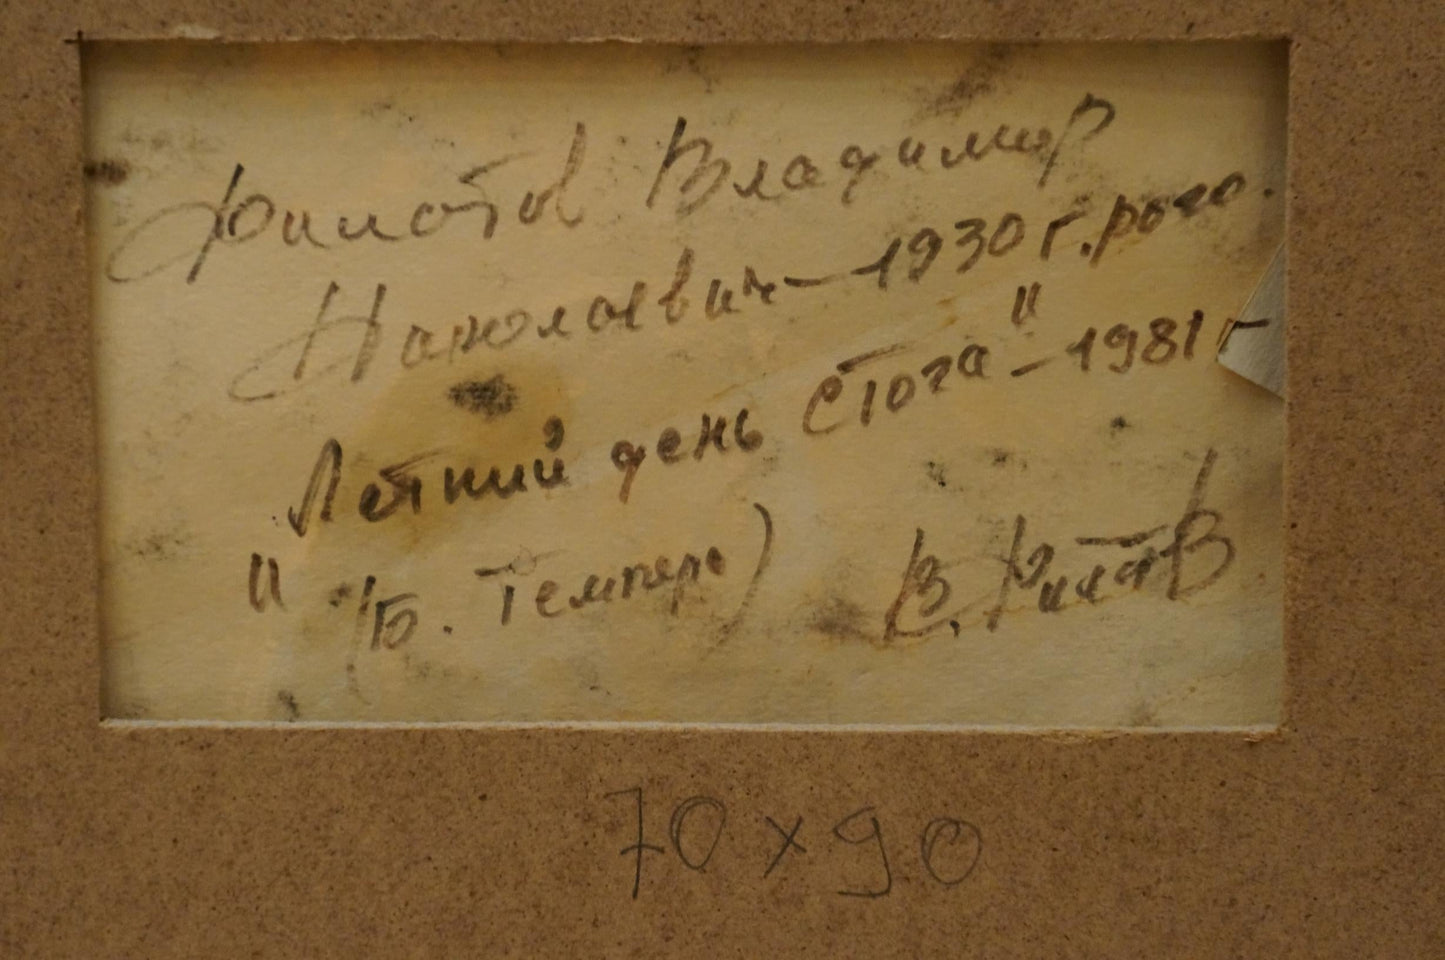 Филатов Владимир
Николаевич — 1930 г. рожд.
"Летний день Стога" — 1981 г
(Б. Темпера) В. Филатов
70 x 90